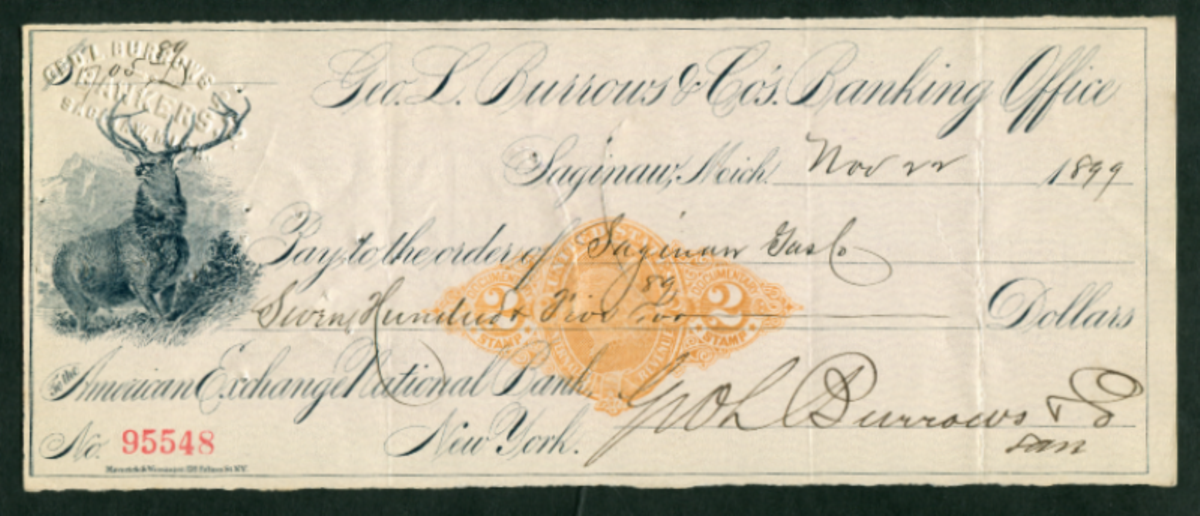 GEO. L. BURROWS & CO.
BANKERS
SAGINAW,
$705 89
Geo. L. Burrows & Co's. Banking Office
Saginaw, Mich. Nov 22 1899
Pay to the order of Saginaw Gas Co
Seven Hundred Five 89/100 Dollars
To the American Exchange National Bank,
No. 95548 New York.
Geo L Burrows & Co
2 STAMP
DOCUMENTARY 2 STAMP